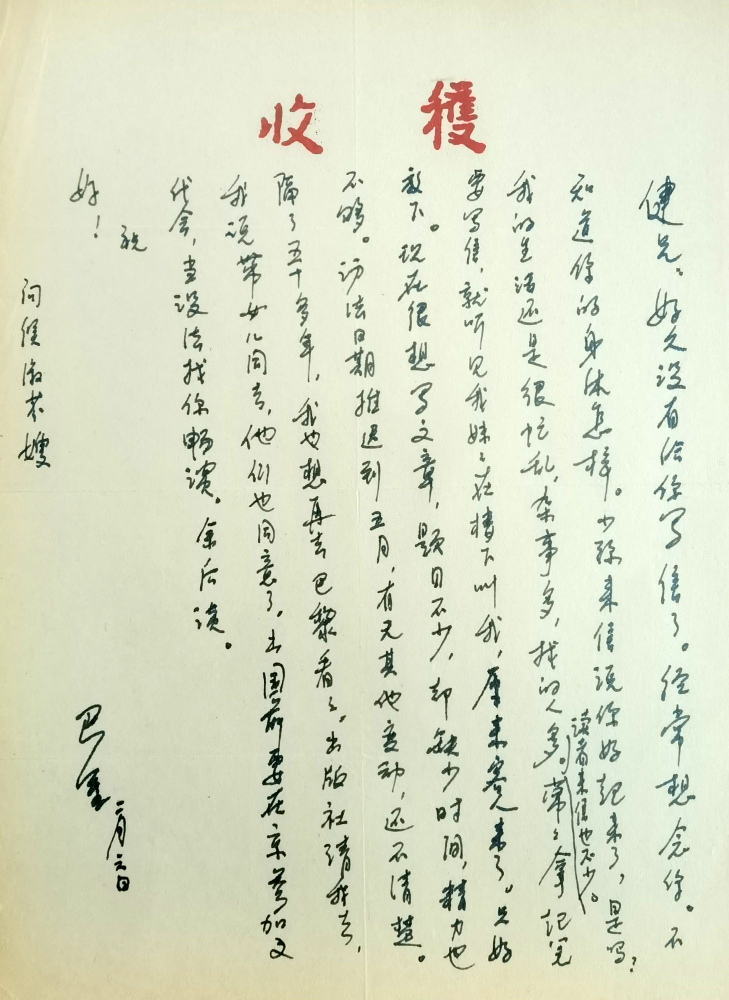 收穫
健兄：好久没有给你写信了。经常想念你。不
知道你的身体怎样。小孙来信说你好起来了，是吗？
我的生活还是很忙乱，杂事多，找的人多，常々拿起笔
读者来信也不少。
要写信，就听见我妹々在楼下叫我，原来客人来了。只好
放下。现在很想写文章，题目不少，却缺少时间，精力也
不够。访法日期推迟到五月，有无其他变动，还不清楚。
隔了五十多年，我也想再去巴黎看々。出版社请我去，
我说带女儿同去，他们也同意了。出国前要在京参加文
代会，当设法找你畅谈。余后谈。
祝
好！
巴金
二月六日
问候淑芬嫂